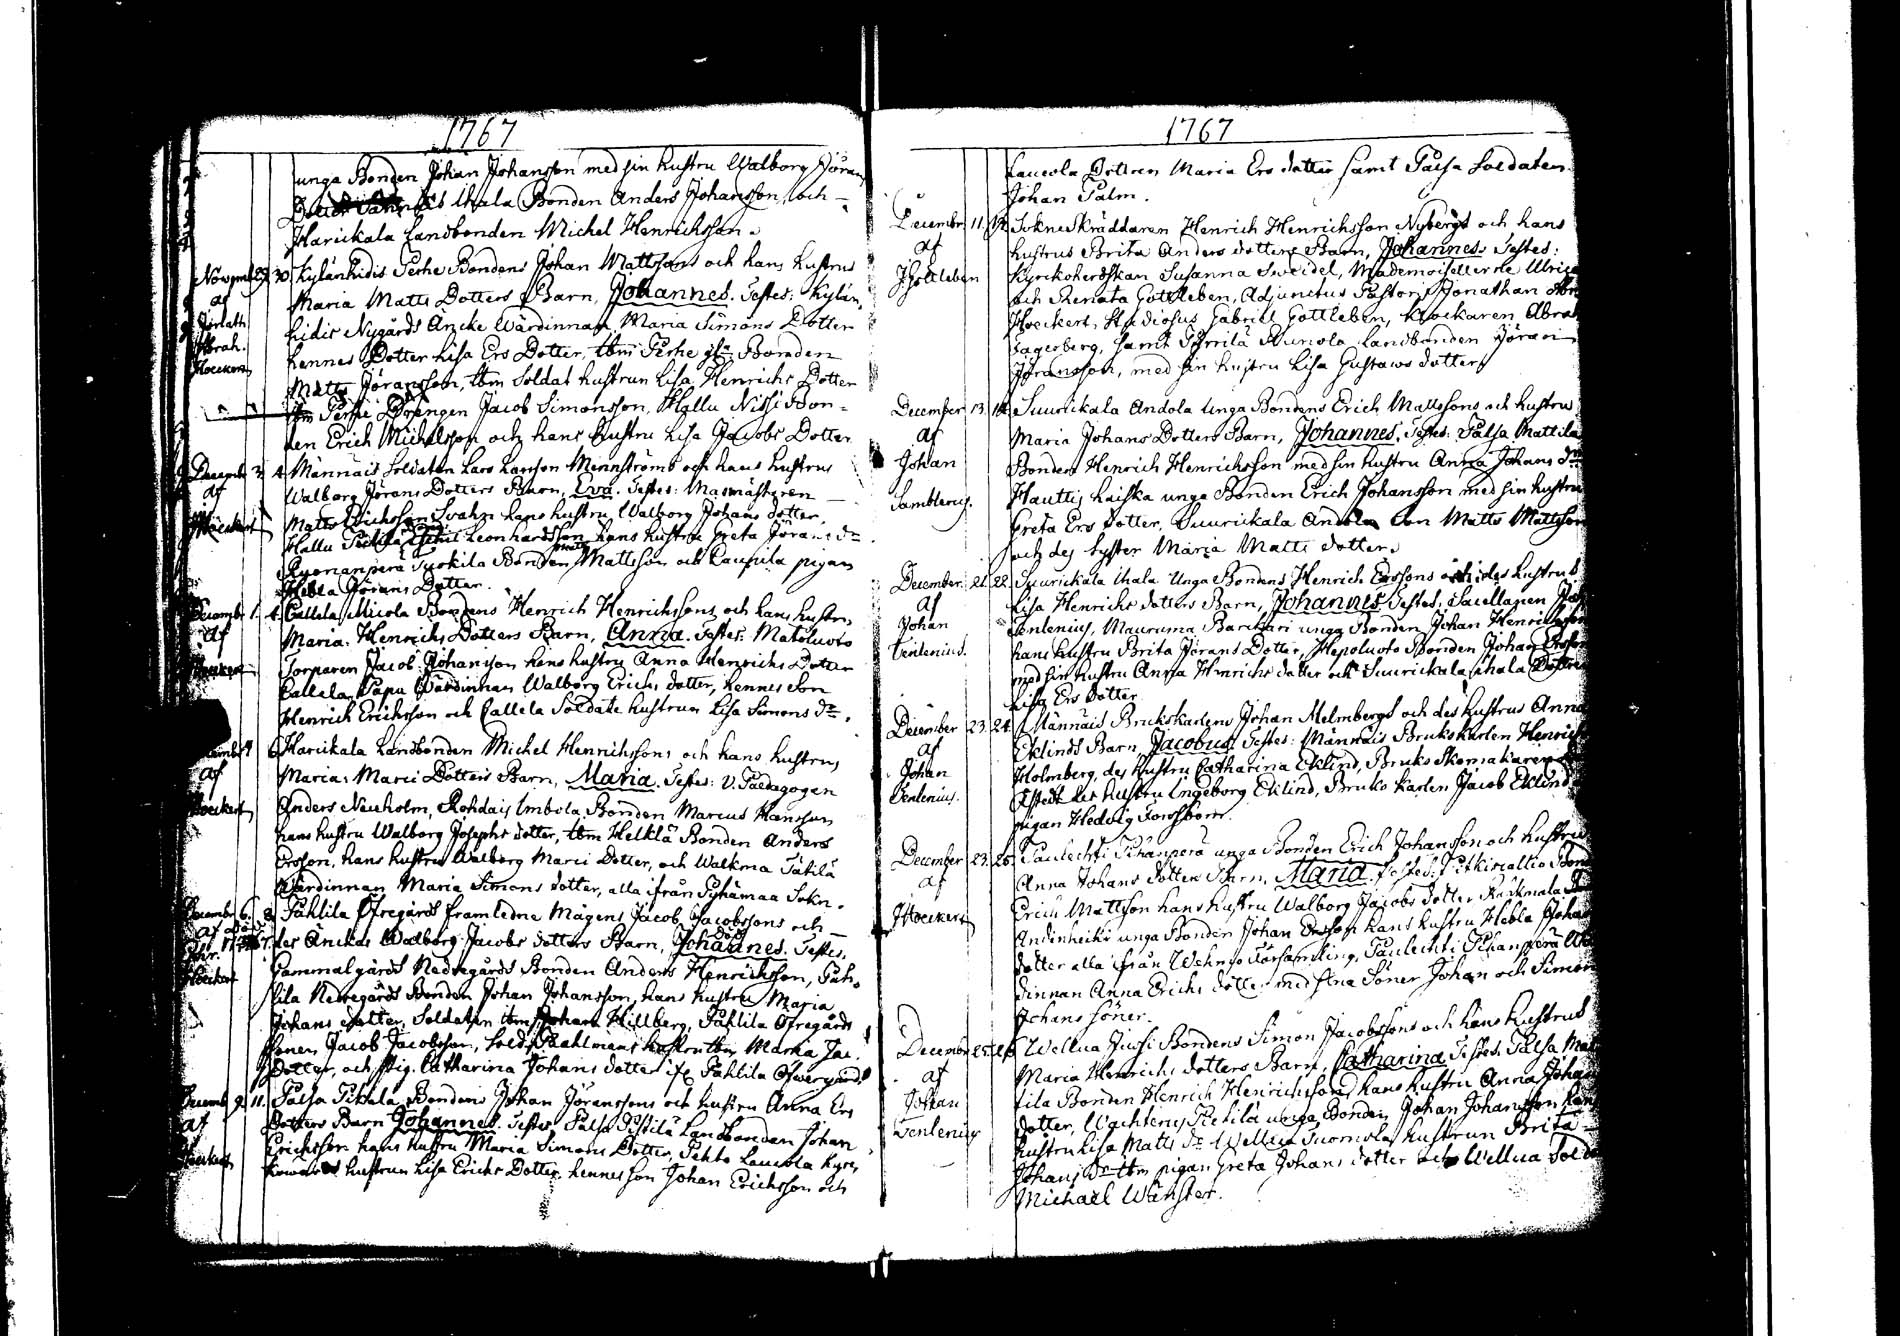 1767
unga Bonden Johan Johansson med sin hustru Walborg Jörans
Dotter ihala Bonden Anders Johansson, och
Harickala Landbonden Michel Henrichsson.
Novemb 29. 30. Kylänhidis Perhe Bondens Johan Mattsons och hans hustrus
af Maria Matts Dotters Barn, Johannes. Testes: Kylän
hidis Nygårds Äncke Wärdinnan Maria Simons Dotter
Abrah. hennes Dotter Lisa Ers Dotter, ibm Perhe gl: Bonden
Hoeckert Matts Jöransson, ibm Soldat hustrun Lisa Henrichs Dotter
ibm Perhe Drengen Jacob Simonsson, Hallu Nissi Bon-
den Erich Michelsson och hans hustru Lisa Jacobs Dotter
Decemb 3. 4. Männäis Soldaten Lars Larsson Mennströms och hans hustrus
af Walborg Jörans Dotters Barn, Eva. Testes: Masmästaren
JHoeckert Matts Erichsson Svahn hans hustru Walborg Johans dotter,
Hallu Leonhardsson hans hustru Greta Jörans dr
Bonden Matts Mattsson och Laupila pigan
Hebla Jörans Dotter.
Decembr 1. 4. Callela Micola Bondens Henrich Henrichssons och hans hustrus
af Maria Henrichs Dotters Barn, Anna. Testes: Matoluoto
Hoeckert Torparen Jacob Johansson hans hustru Anna Henrichs Dotter
Callela Papu Wärdinnan Walborg Erichs dotter, hennes Son
Henrich Erichsson och Callela Soldate hustrun Lisa Simons dr.
6 Harickala Landbonden Michel Henrichssons och hans hustrus
af Maria Marci Dotters Barn, Maria. Testes: V. Paedagogen
Hoeckert Anders Neuholm, Rohdais Imbola Bonden Marcus Hansson
hans hustru Walborg Josephs dotter, ibm Helklä Bonden Anders
Ersson, hans hustru Walborg Marci Dotter, och Walkma Tätilä
Wärdinnan Maria Simons dotter, alla ifrån Pyhämaa Sokn.
Decembr 6. 8. Pahlila Öfregårds framledne Mågens Jacob Jacobssons och
af des Änckas Walborg Jacobs dotters Barn, Johannes. Testes.
Hoeckert Gammalgårds Nedregårds Bonden Anders Henrichsson, Pah-
lila Nedregårds Bonden Johan Johansson, hans hustru Maria
Johans dotter, Soldaten ibm Johan Hillberg, Pahlila Öfregårds
Sonen Jacob Jacobsson, Sold: Pahlmans hustru ibm Maria Jac.
Dotter, och Pig. Catharina Johans dotter if: Pahlila Öfwergård.
Decemb 9. 11. Palsa Pikala Bondens Johan Jöranssons och hustru Anna Ers
af Dotters Barn Johannes. Testes Palsa Landbonden Johan
Hoeckert Erichsson hans hustru Maria Simons Dotter, Laucola Kyr-
hustrun Lisa Erichs Dotter hennes son Johan Erichsson och
1767
Laucola Dottren Maria Ers dotter samt Palsa Soldaten
Johan Palm.
December 11. 12. Sokne Skräddaren Henrich Henrichsson Nybergs och hans
af hustrus Brita Anders dotters Barn, Johannes. Testes:
JGottleben Kyrkoherdskan Susanna Sweidel, Mademoisellerne Ulrica
och Renata Gottleben, Adjunctus Pastoris Jonathan Abr
Hoeckert, Studiosus Gabriel Gottleben, Klockaren Abrah
Fagerberg, samt Landbonden Jöran
Jöransson, med sin hustru Lisa Gustaws dotter
December 13. 14. Suurikala Andola Unga Bondens Erich Mattssons och hustru
af Maria Johans Dotters Barn, Johannes. Testes: Palsa Mattila
Johan Bonden Henrich Henrichsson med sin hustru Anna Johans dr
unga Bonden Erich Johansson med sin hustru
Greta Ers dotter, Suurickala Andola Son Matts Mattsson
och des Syster Maria Matts dotter.
December 21. 22. Suurickala ihala Unga Bondens Henrich Erssons och des hustrus
af Lisa Henrichs dotters Barn, Johannes Testes: Sacellanen
Johan Tenlenius, Mauruma unga Bonden Johan Henrichsson
Tenlenius. hans hustru Brita Jörans Dotter, Hepoluoto Bonden Johan Ersson
med sin hustru Anna Henrichs dotter och Suurickala ihala Dottren
Lisa Ers dotter
December 23. 24. Männäis Brukskarlens Johan Melmbergs och des hustrus Anna
af Eklinds Barn Jacobus. Testes: Männäis Brukskarlen Henrich
Johan Holmberg, des hustru Catharina Eklind, Bruks Skomakaren
Tenlenius. des hustru Ingeborg Eklind, Bruks karlen Jacob Eklind
pigan Hedvig
December 23. 26. Paulechti Pihanperä unga Bonden Erich Johansson och hustru
af Anna Johans dotters Barn, Maria. Testes:
JHoeckert Erich Mattsson hans hustru Walborg Jacobs dotter
unga Bonden Johan Ersson hans hustru Hebla Johan
dotter alla ifrån Wehmo Församling, Paulechti Pihanperä
dinnan Anna Erichs dotter med sina Söner Johan och Simon
Johans Söner.
Decembr 25. 26 Wellua Jiusi Bondens Simon Jacobssons och hans hustrus
af Maria Henrichs dotters Barn, Catharina Testes: Palsa Mat
Johan tila Bonden Henrich Henrichsson hans hustru Anna Johan
Tenlenius dotter, unga Bonden Johan Johansson hans
hustru Lisa Matts dr Wellua Suomola hustrun Brita
Johans dr ibm pigan Greta Johans dotter och Wellua Sold
Michael Wänster.